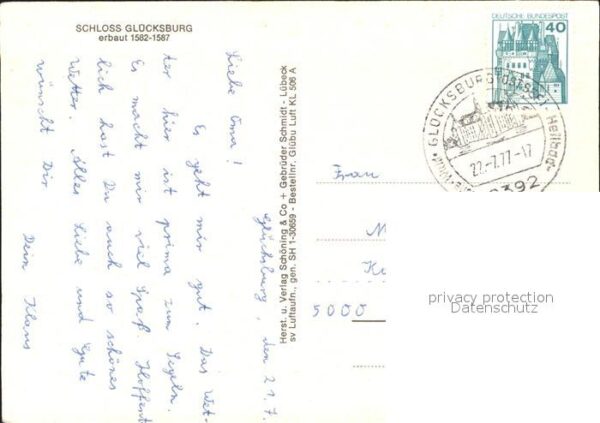 SCHLOSS GLÜCKSBURG
erbaut 1582-1587
Glücksburg, den 21.7.
Liebe Oma!
Es geht mir gut. Das Wet-
ter hier ist prima zum Segeln.
Es macht mir viel Spaß. Hoffent-
lich hast Du auch so schönes
Wetter. Alles Liebe und Gute
wünscht Dir
Dein Klaus
Herst. u. Verlag Schöning & Co + Gebrüder Schmidt - Lübeck
sv Luftaufn., gen. SH 1-30659 - Bestellnr. Glübu Luft KL 506 A
DEUTSCHE BUNDESPOST
40
GLÜCKSBURG (OSTSEE)
Heilbad
22.-7.77-17
2392
Frau
5000
privacy protection
Datenschutz